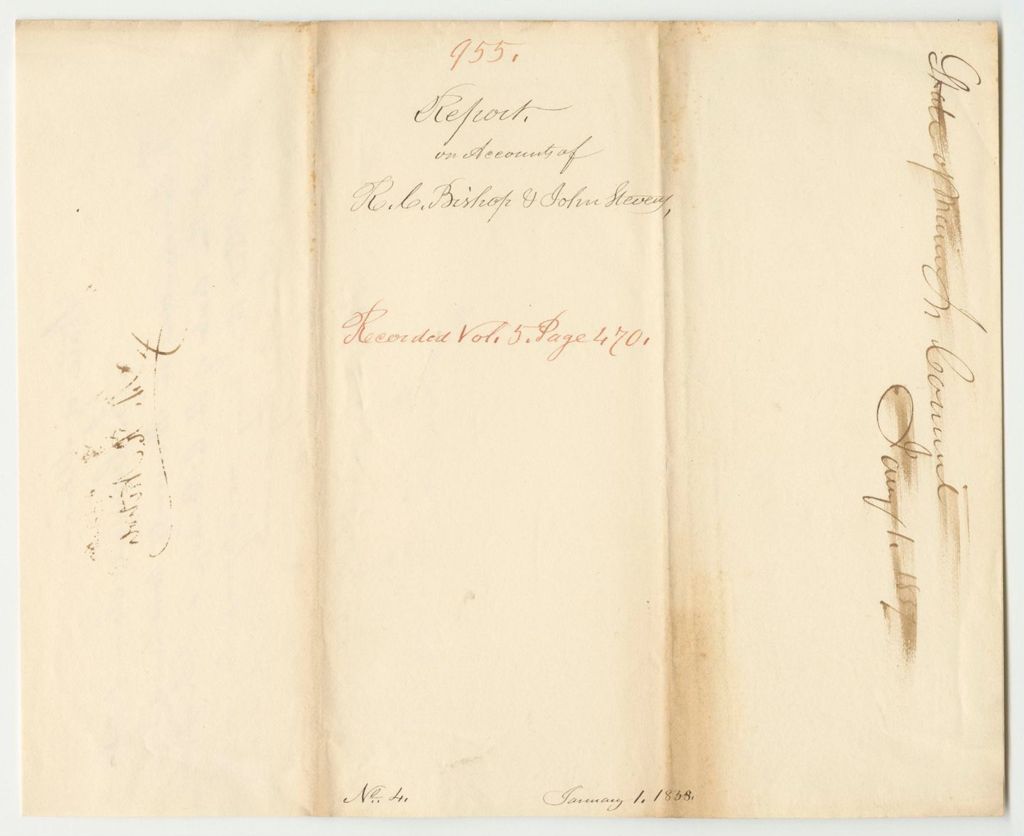 955.
Report.
on Accounts of
R. C. Bishop & John Stevens,
Recorded Vol. 5. Page 470.
No. 4.
January 1. 1838.
State of Maine In Council
Jany 1. 183